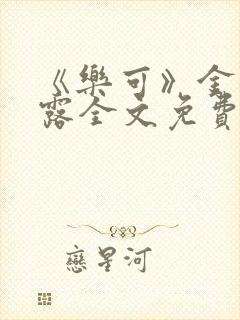 《樂可》金
露全文免費
戀星河